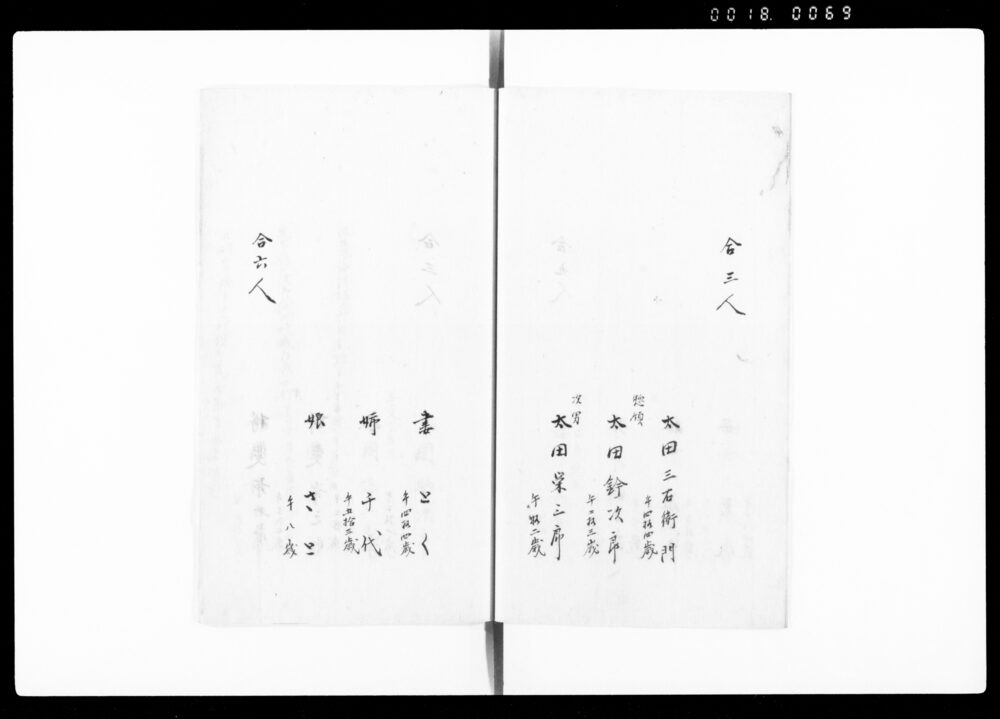 0018. 0069
合三人
太田三右衛門
午四拾四歳
惣領
太田鈴次郎
午二拾三歳
次男
太田栄三郎
午拾二歳
妻 とく
午四拾四歳
姉 千代
午五拾三歳
娘 さと
午八歳
合六人